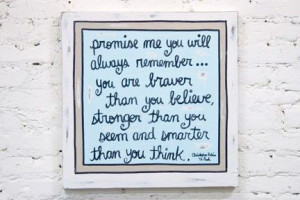 promise me you will
always remember...
you are braver
than you believe,
stronger than you
seem and smarter
than you think.
Christopher Robin
to Pooh